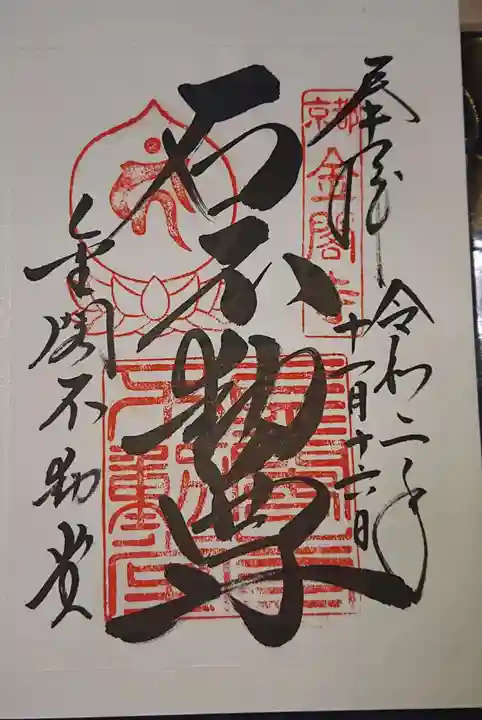 奉拝
京都
金閣寺
令和二年
十一月十六日
石不動尊
金閣不動堂